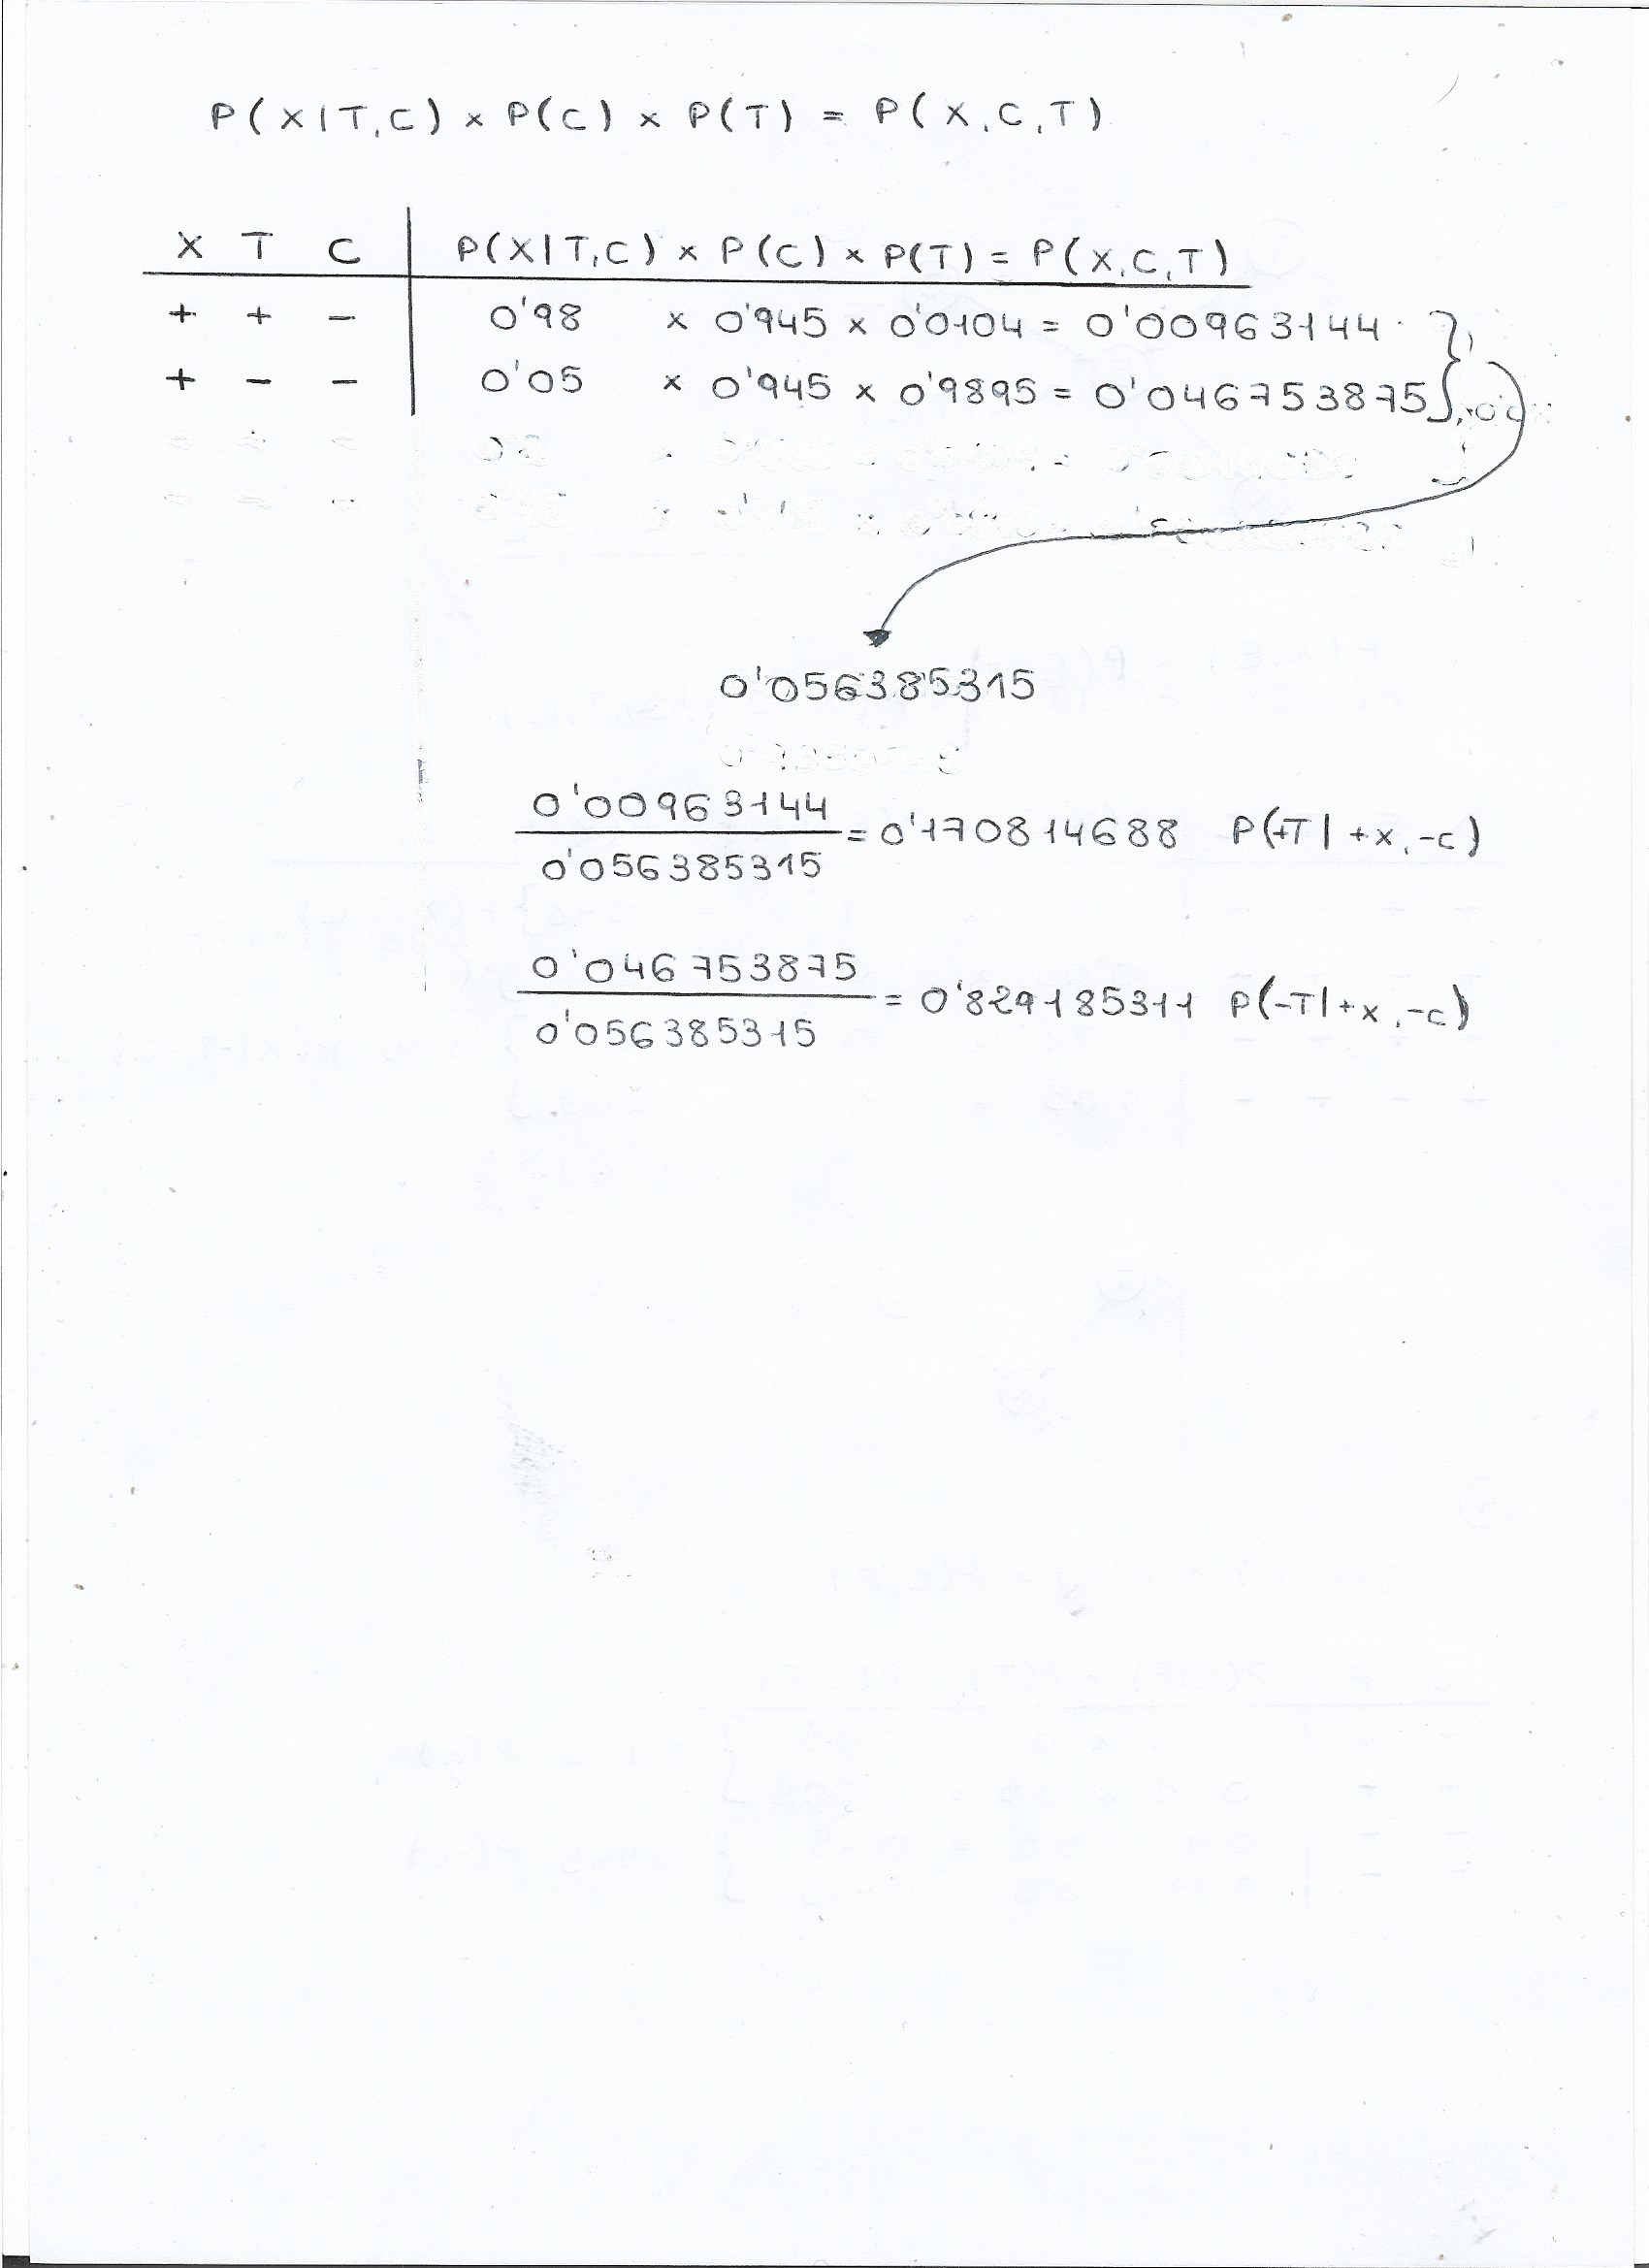 P(X|T,C) × P(C) × P(T) = P(X,C,T)
X T C P(X|T,C) × P(C) × P(T) = P(X,C,T)
+ + - 0'98 × 0'945 × 0'0104 = 0'00963144
+ - - 0'05 × 0'945 × 0'9895 = 0'046753875
0'056385315
0'00963144
0'056385315
= 0'170814688 P(+T|+x,-c)
0'046753875
0'056385315
= 0'829185311 P(-T|+x,-c)